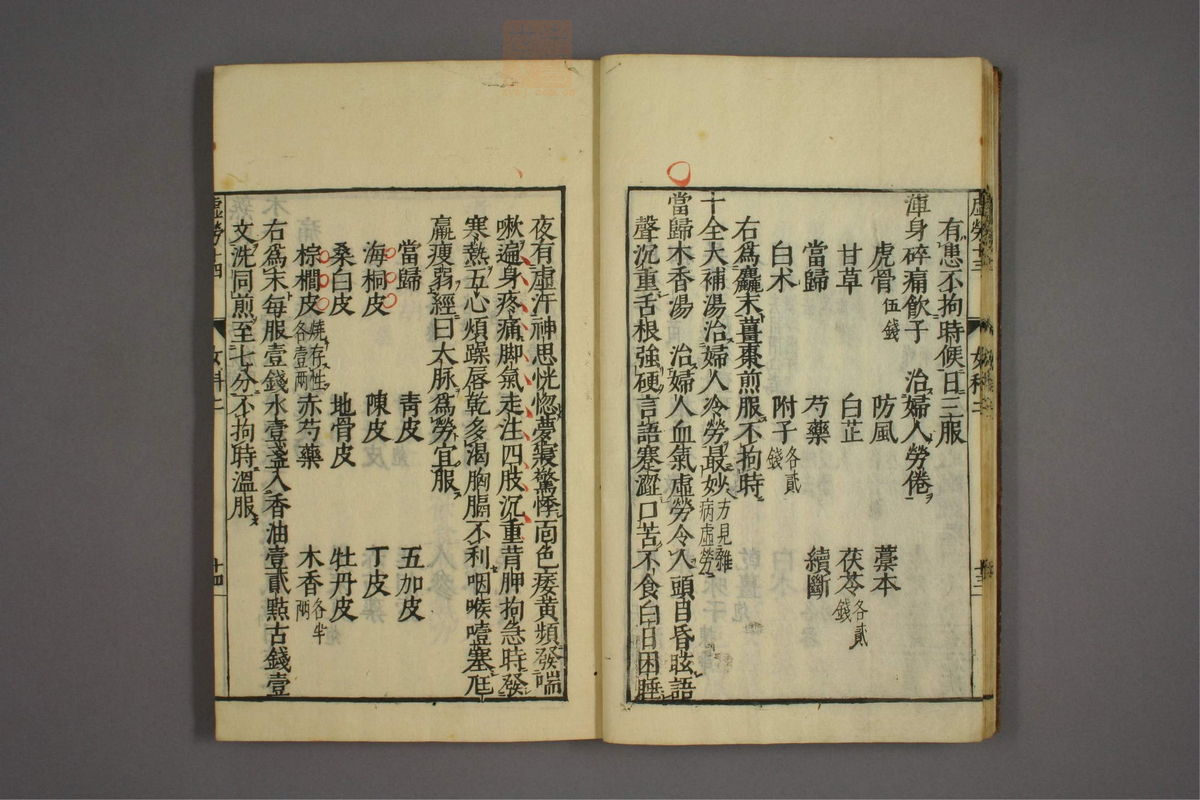 虛勞十三 女科二 十三
有患不拘時候日三服
渾身碎痛飲子 治婦人勞倦
虎骨伍錢 防風 藁本
甘草 白芷 茯苓各貳錢
當歸 芍藥 續斷
白朮 附子各貳錢
右爲麤末薑棗煎服不拘時
十全大補湯治婦人冷勞最妙方見雜病虛勞
當歸木香湯 治婦人血氣虛勞令人頭目昏眩語
聲沉重舌根強硬言語蹇澀口苦不食白日困睡
夜有虛汗神思恍惚夢寢驚悸面色痿黃頻發喘
嗽遍身疼痛脚氣走注四肢沉重背胛拘急時發
寒熱五心煩躁唇乾多渴胸膈不利咽喉噎塞尫
羸瘦弱經曰太脉爲勞宜服
當歸 青皮 五加皮
海桐皮 陳皮 丁皮
桑白皮 地骨皮 牡丹皮
棕櫚皮燒存性各壹兩 赤芍藥 木香各半兩
右爲末每服壹錢水壹盞入香油壹貳點古錢壹
文洗同煎至七分不拘時溫服
虛勞十四 女科二 十四